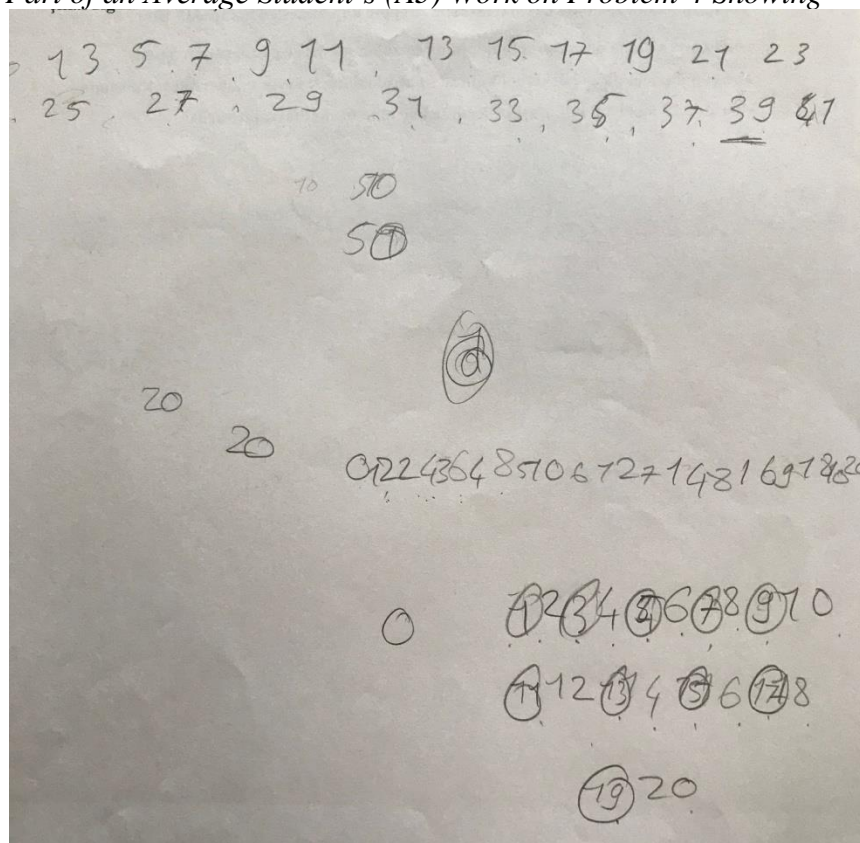 Part of an Average Student's (A3) Work on Problem 4 Showing
1 3 5 7 9 11 13 15 17 19 21 23
25 27 29 31 33 35 37 39 41
10 50
50
20
20
0 1 2 2 4 3 6 4 8 5 10 6 12 7 14 8 16 9 18 10 20
0
1 2 3 4 5 6 7 8 9 10
11 12 13 4 15 6 17 8
19 20